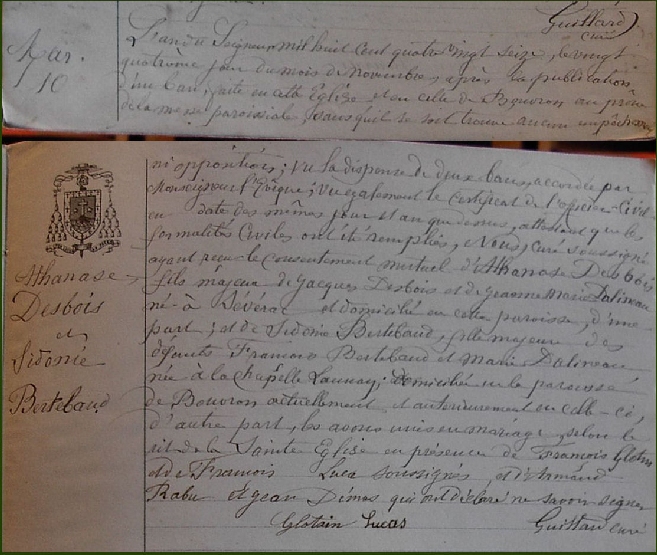 Guillard
curé
Mar.
10
L'an du Seigneur mil huit cent quatre vingt seize, le vingt
quatrième jour du mois de Novembre, après la publication
d'un ban, faite en cette Église et en celle de Bouvron au prône
de la messe paroissiale, sans qu'il se soit trouvé aucun empêchement
ni opposition; vu la dispense de deux bans, accordée par
Monseigneur l'Évêque; vu également le certificat de l'officier Civil
en date des mêmes jour et an que dessus, attestant que les
formalités Civiles ont été remplies, Nous, curé soussigné
ayant reçu le consentement mutuel d'Athanase Desbois
fils majeur de Jacques Desbois et de Jeanne Marie Dalineau
né à Sévérac et domicilié en cette paroisse, d'une
part; et de Sidonie Bertebaud, fille majeure des
défunts François Bertebaud et Marie Dalineau
née à la Chapelle Launay; domiciliée en la paroisse
de Bouvron actuellement et antérieurement en celle-ci,
d'autre part, les avons unis en mariage, selon le
rit de la Sainte Église en présence de François Glotin
et de François Luca soussignés, et d'Armand
Rabu et Jean Dimas qui ont déclaré ne savoir signer
Athanase
Desbois
et
Sidonie
Bertebaud
Glotain Lucas
Guillard curé